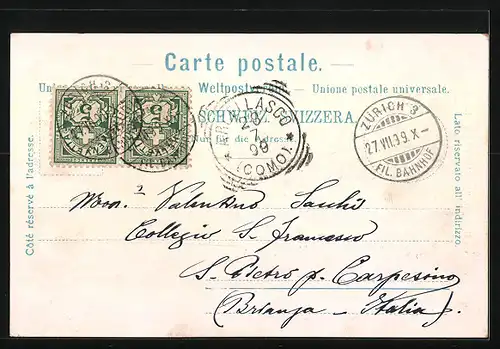 Carte postale.
Weltpostverein. Unione postale universale.
SCHWEIZ. SVIZZERA.
Nur für die Adresse.
Côté réservé à l'adresse.
Lato riservato all' indirizzo.
(COMO)
ZÜRICH 3
27.VII.99.X-
FIL. BAHNHOF
Valentino Sacchi
Collegio S. Francesco
S. Pietro p. Carpesino
(Brianza - Italia).